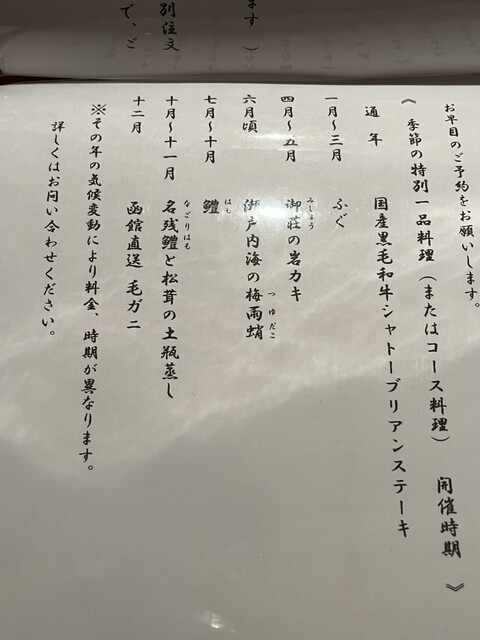 ます ）
別注文
で、ご
お早目のご予約をお願いします。
《 季節の特別一品料理（またはコース料理） 開催時期 》
通年 国産黒毛和牛シャトーブリアンステーキ
一月～三月 ふぐ
四月～五月 御荘の岩カキ
みしょう
六月頃 瀬戸内海の梅雨蛸
つゆだこ
七月～十月 鱧
はも
十月～十一月 名残鱧と松茸の土瓶蒸し
なごりはも
十二月 函館直送 毛ガニ
※その年の気候変動により料金、時期が異なります。
詳しくはお問い合わせください。